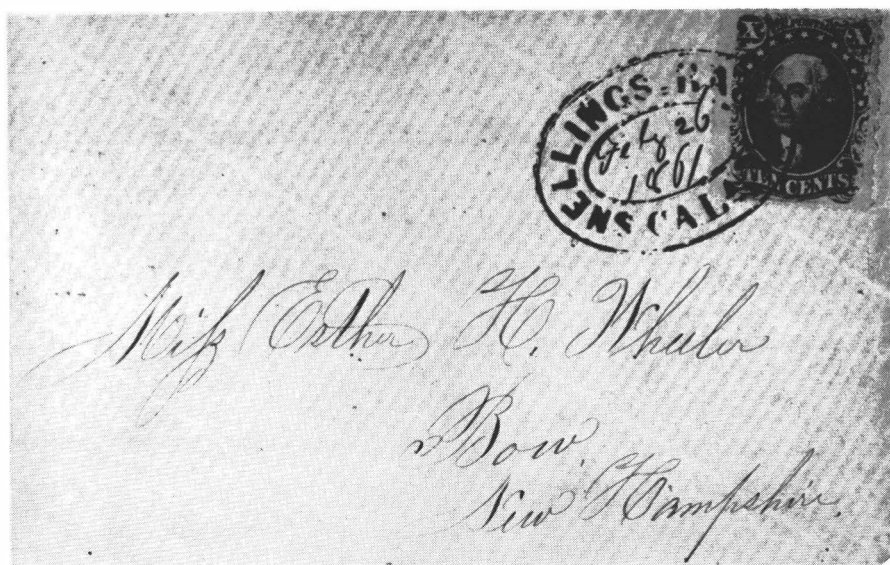 X X
SNELLINGS. RA
Feby 26
1861
CAL
TEN CENTS
Miss Esther H. Wheeler
Bow
New Hampshire.